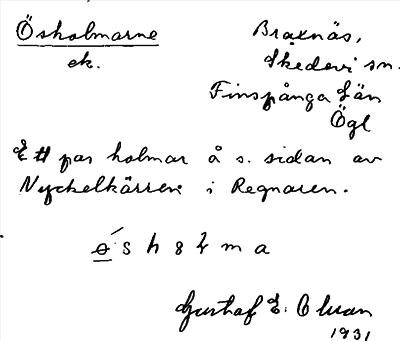 Ösholmarne
ek.
Braxnäs,
Skedevi sn.
Finspånga Län
Ögl
Ett par holmar å s. sidan av
Nyckelkärren i Regnaren.
Gustaf E.
1931